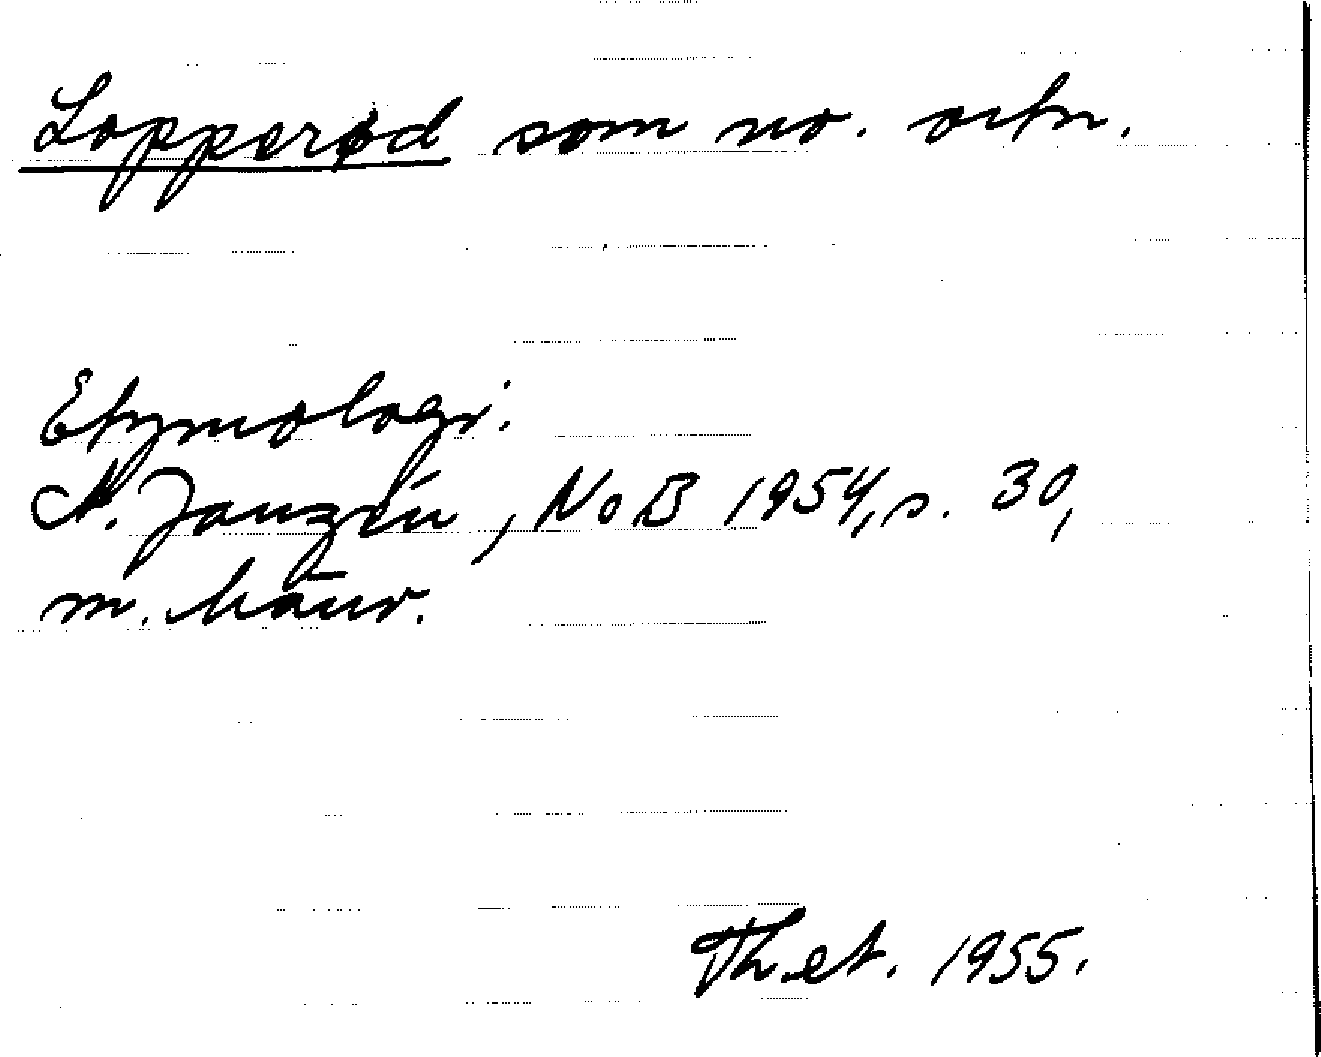 Lopperød som no. ortn.
Etymologi:
A. Janzén, NoB 1954, s. 30,
m. hänv.
Th. et. 1955.